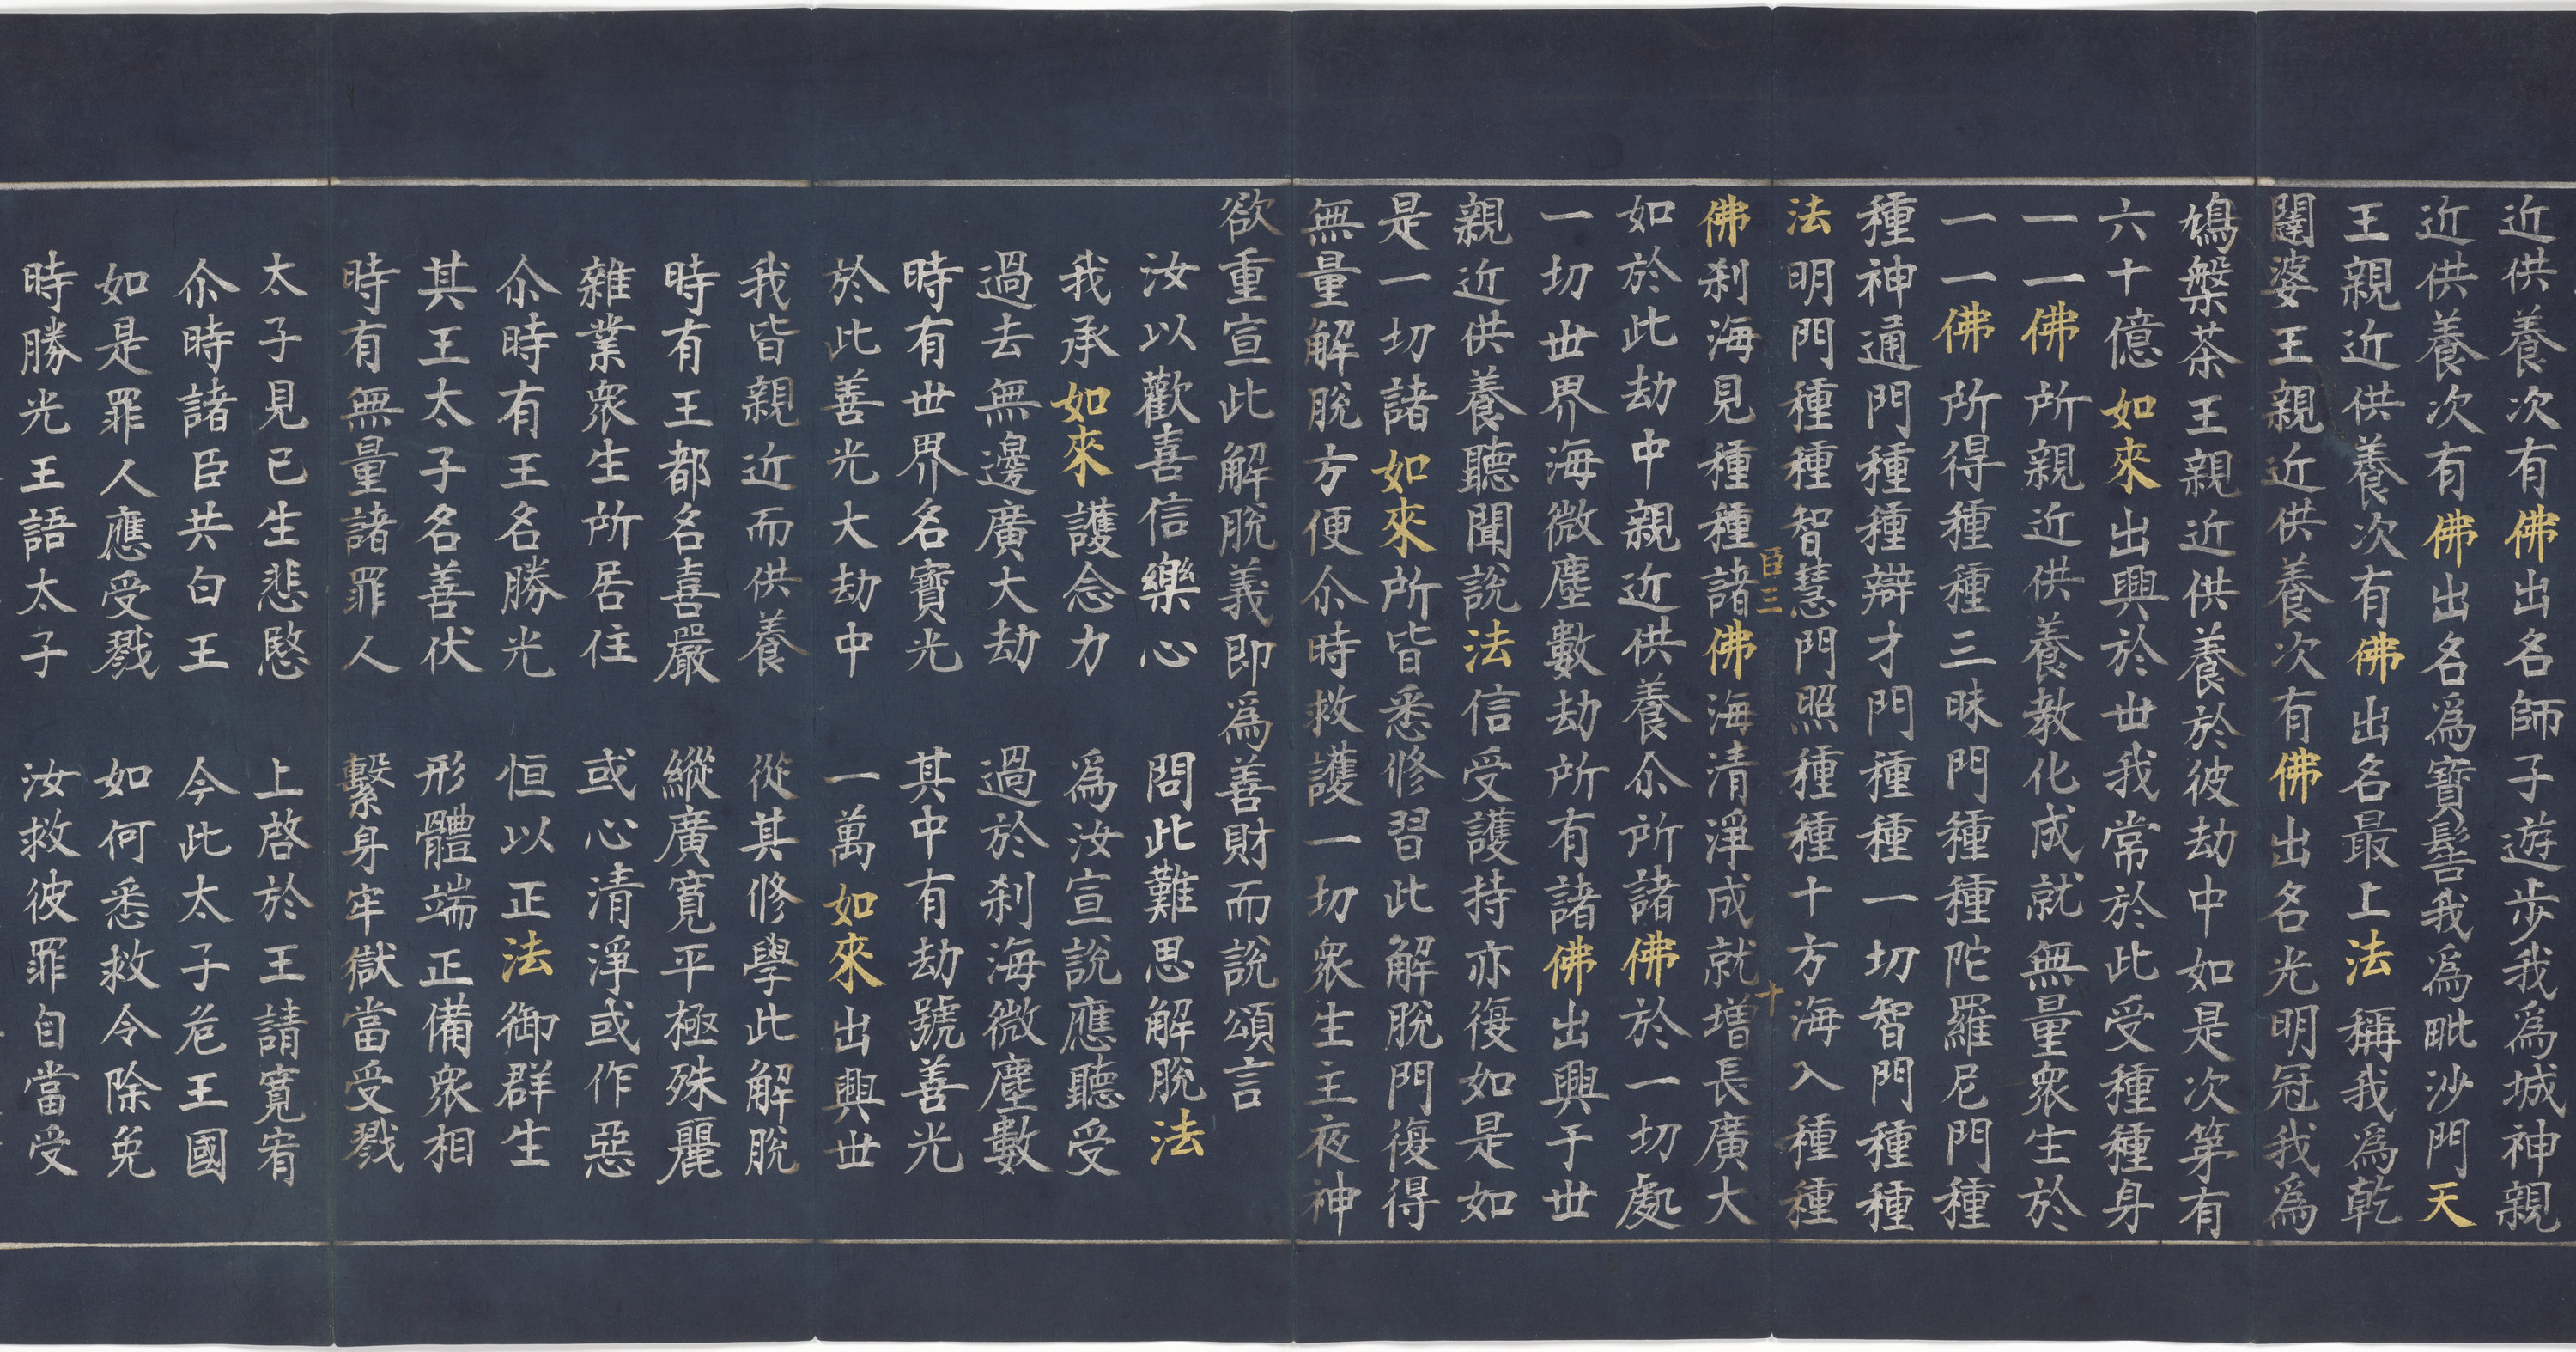 近供養次有佛出名師子遊步我為城神親
近供養次有佛出名為寶髻我為毗沙門天
王親近供養次有佛出名最上法稱我為乾
闥婆王親近供養次有佛出名光明冠我為
鳩槃茶王親近供養於彼劫中如是次第有
六十億如來出興於世我常於此受種種身
一一佛所親近供養教化成就無量衆生於
一一佛所得種種三昧門種種陀羅尼門種
種神通門種種辯才門種種一切智門種種
法明門種種智慧門照種種十方海入種種
臣三 十
佛刹海見種種諸佛海清淨成就增長廣大
如於此劫中親近供養尒所諸佛於一切處
一切世界海微塵數劫所有諸佛出興于世
親近供養聽聞說法信受護持亦復如是如
是一切諸如來所皆悉修習此解脫門復得
無量解脫方便尒時救護一切衆生主夜神
欲重宣此解脫義即為善財而說頌言
汝以歡喜信樂心 問此難思解脫法
我承如來護念力 為汝宣說應聽受
過去無邊廣大劫 過於刹海微塵數
時有世界名寶光 其中有劫號善光
於此善光大劫中 一萬如來出興世
我皆親近而供養 從其修學此解脫
時有王都名喜嚴 縱廣寬平極殊麗
雜業衆生所居住 或心清淨或作惡
尒時有王名勝光 恒以正法御群生
其王太子名善伏 形體端正備衆相
時有無量諸罪人 繫身牢獄當受戮
太子見已生悲愍 上啓於王請寬宥
尒時諸臣共白王 今此太子危王國
如是罪人應受戮 如何悉救令除免
時勝光王語太子 汝救彼罪自當受